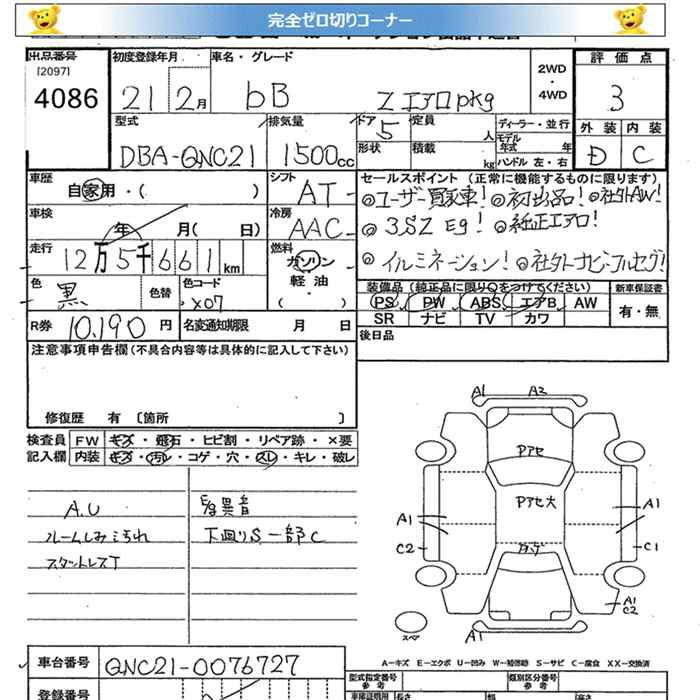 完全ゼロ切りコーナー
出品番号
[2097]
4086
初度登録年月
21 2月
車名・グレード
bB Zエアロpkg
2WD・4WD
評価点
3
外装 内装
D C
型式
DBA-QNC21
排気量
1500cc
ドア
5
定員
人
形状
積載
kg
ディーラー・並行
モデル年式 年
ハンドル 左・右
車歴
自家用・( )
シフト
AT
車検
年 月 ( 日)
冷房
AAC
走行
12万5千661km
燃料
ガソリン
軽油
・( )
色
黒
色替
色コード
X07
R券
10,190円
名変通知期限 月 日
セールスポイント (正常に機能するものに限ります)
◎ユーザー買取車! ◎初出品! ◎社外AW!
◎3SZ Eg! ◎純正エアロ!
◎イルミネーション! ◎社外ナビ・フルセグ!
装備品 (純正品に限り○をつけてください)
新車保証書
PS PW ABS エアB AW
SR ナビ TV カワ
有・無
後日品
注意事項申告欄 (不具合内容等は具体的に記入して下さい)
修復歴 有 〔箇所 〕
検査員記入欄
FW キズ・飛石・ヒビ割・リペア跡・×要
内装 キズ・汚レ・コゲ・穴・スレ・キレ・破レ
A.U
ルームしみ汚れ
スタットレスT
Eg異音
下廻りS 一部C
A1 A2
Pアセ
Pアセ大
A1
C2
A1
C1
A1
C2
A1
スペア
A-キズ E-エクボ U-凹み W-補修跡 S-サビ C-腐食 XX-交換済
車台番号
QNC21-0076727
登録番号
型式指定番号
参考
類別区分番号
参考
車庫証明用
長さ
幅
高さ